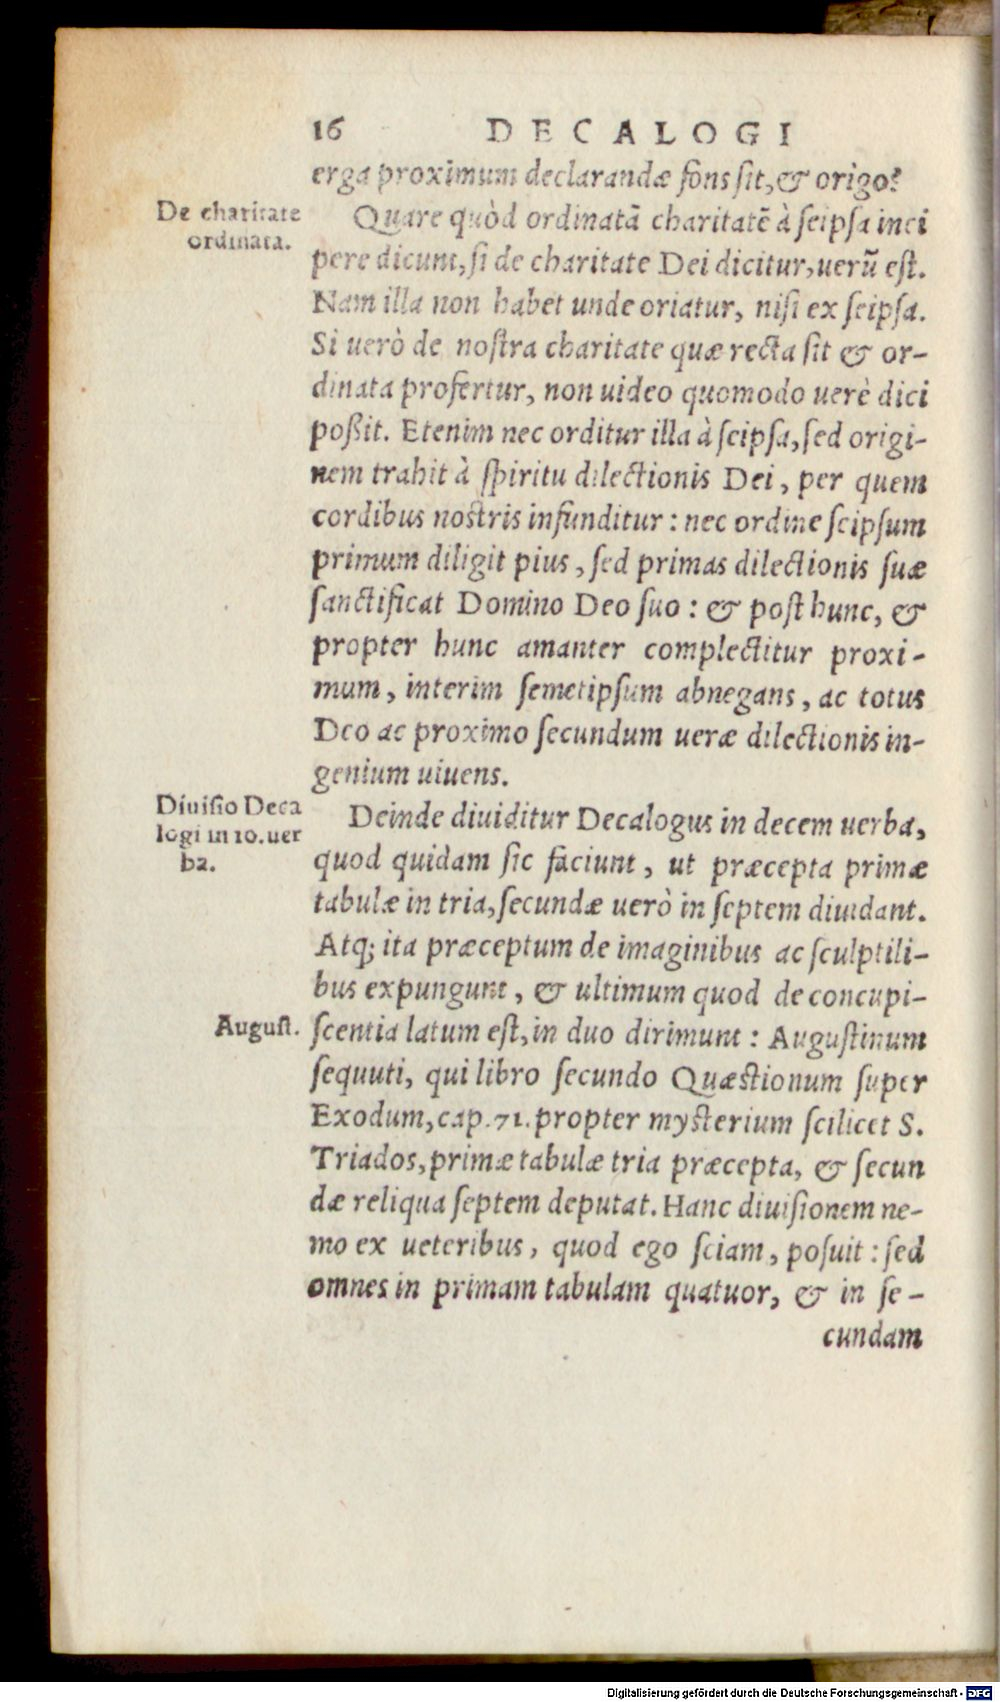 16 DECALOGI
erga proximum declarandæ fons sit, & origo?
De charitate
ordinata.
Quare quòd ordinatā charitatē à seipsa inci
pere dicunt, si de charitate Dei dicitur, uerū est.
Nam illa non habet unde oriatur, nisi ex seipsa.
Si uerò de nostra charitate quæ recta sit & or-
dinata profertur, non uideo quomodo uerè dici
poßit. Etenim nec orditur illa à seipsa, sed origi-
nem trahit à spiritu dilectionis Dei, per quem
cordibus nostris infunditur: nec ordine seipsum
primum diligit pius, sed primas dilectionis suæ
sanctificat Domino Deo suo: & post hunc, &
propter hunc amanter complectitur proxi-
mum, interim semetipsum abnegans, ac totus
Deo ac proximo secundum ueræ dilectionis in-
genium uiuens.
Diuisio Deca
logi in 10. uer
ba.
Deinde diuiditur Decalogus in decem uerba,
quod quidam sic faciunt, ut præcepta primæ
tabulæ in tria, secundæ uerò in septem diuidant.
Atq; ita præceptum de imaginibus ac sculptili-
bus expungunt, & ultimum quod de concupi-
August.
scentia latum est, in duo dirimunt: Augustinum
sequuti, qui libro secundo Quæstionum super
Exodum, cap. 71. propter mysterium scilicet S.
Triados, primæ tabulæ tria præcepta, & secun
dæ reliqua septem deputat. Hanc diuisionem ne-
mo ex ueteribus, quod ego sciam, posuit: sed
omnes in primam tabulam quatuor, & in se-
cundam
Digitalisierung gefördert durch die Deutsche Forschungsgemeinschaft - DFG